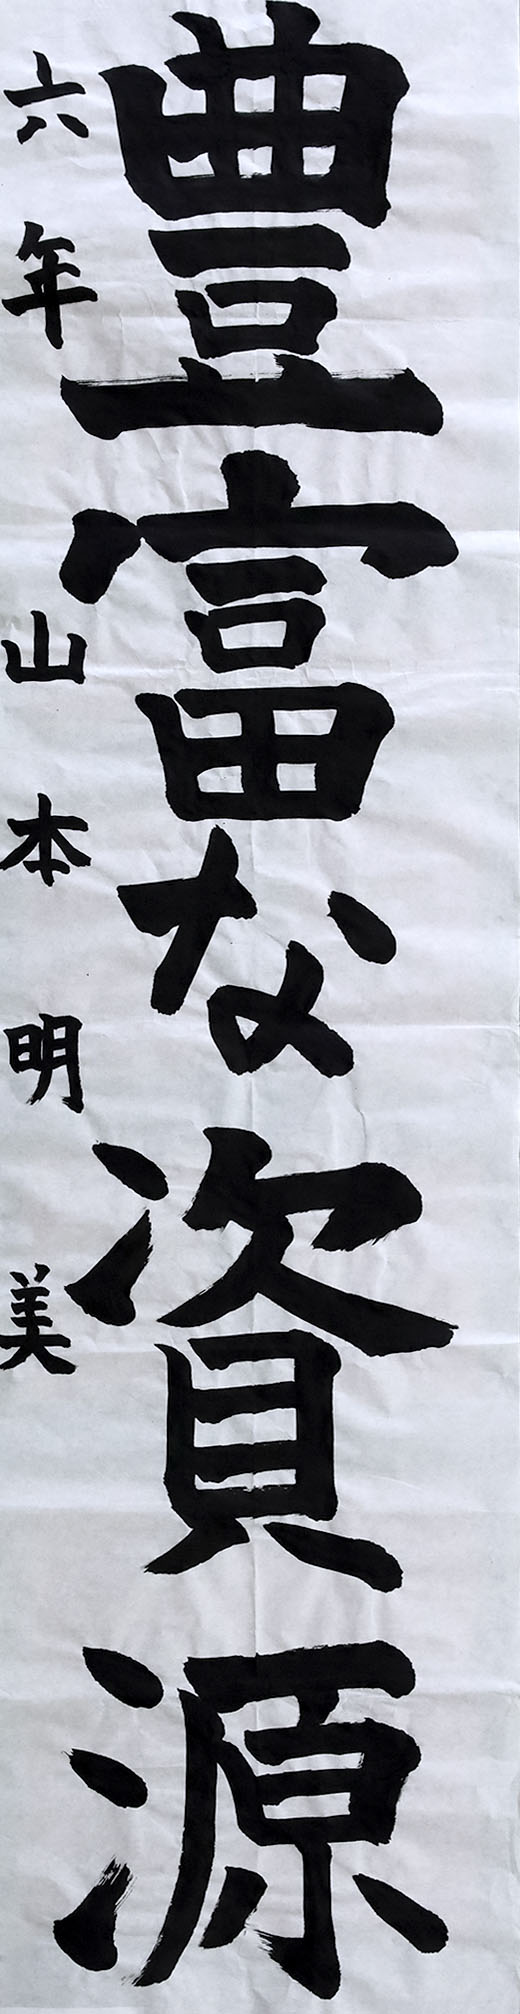 豊富な資源
六年 山本明美